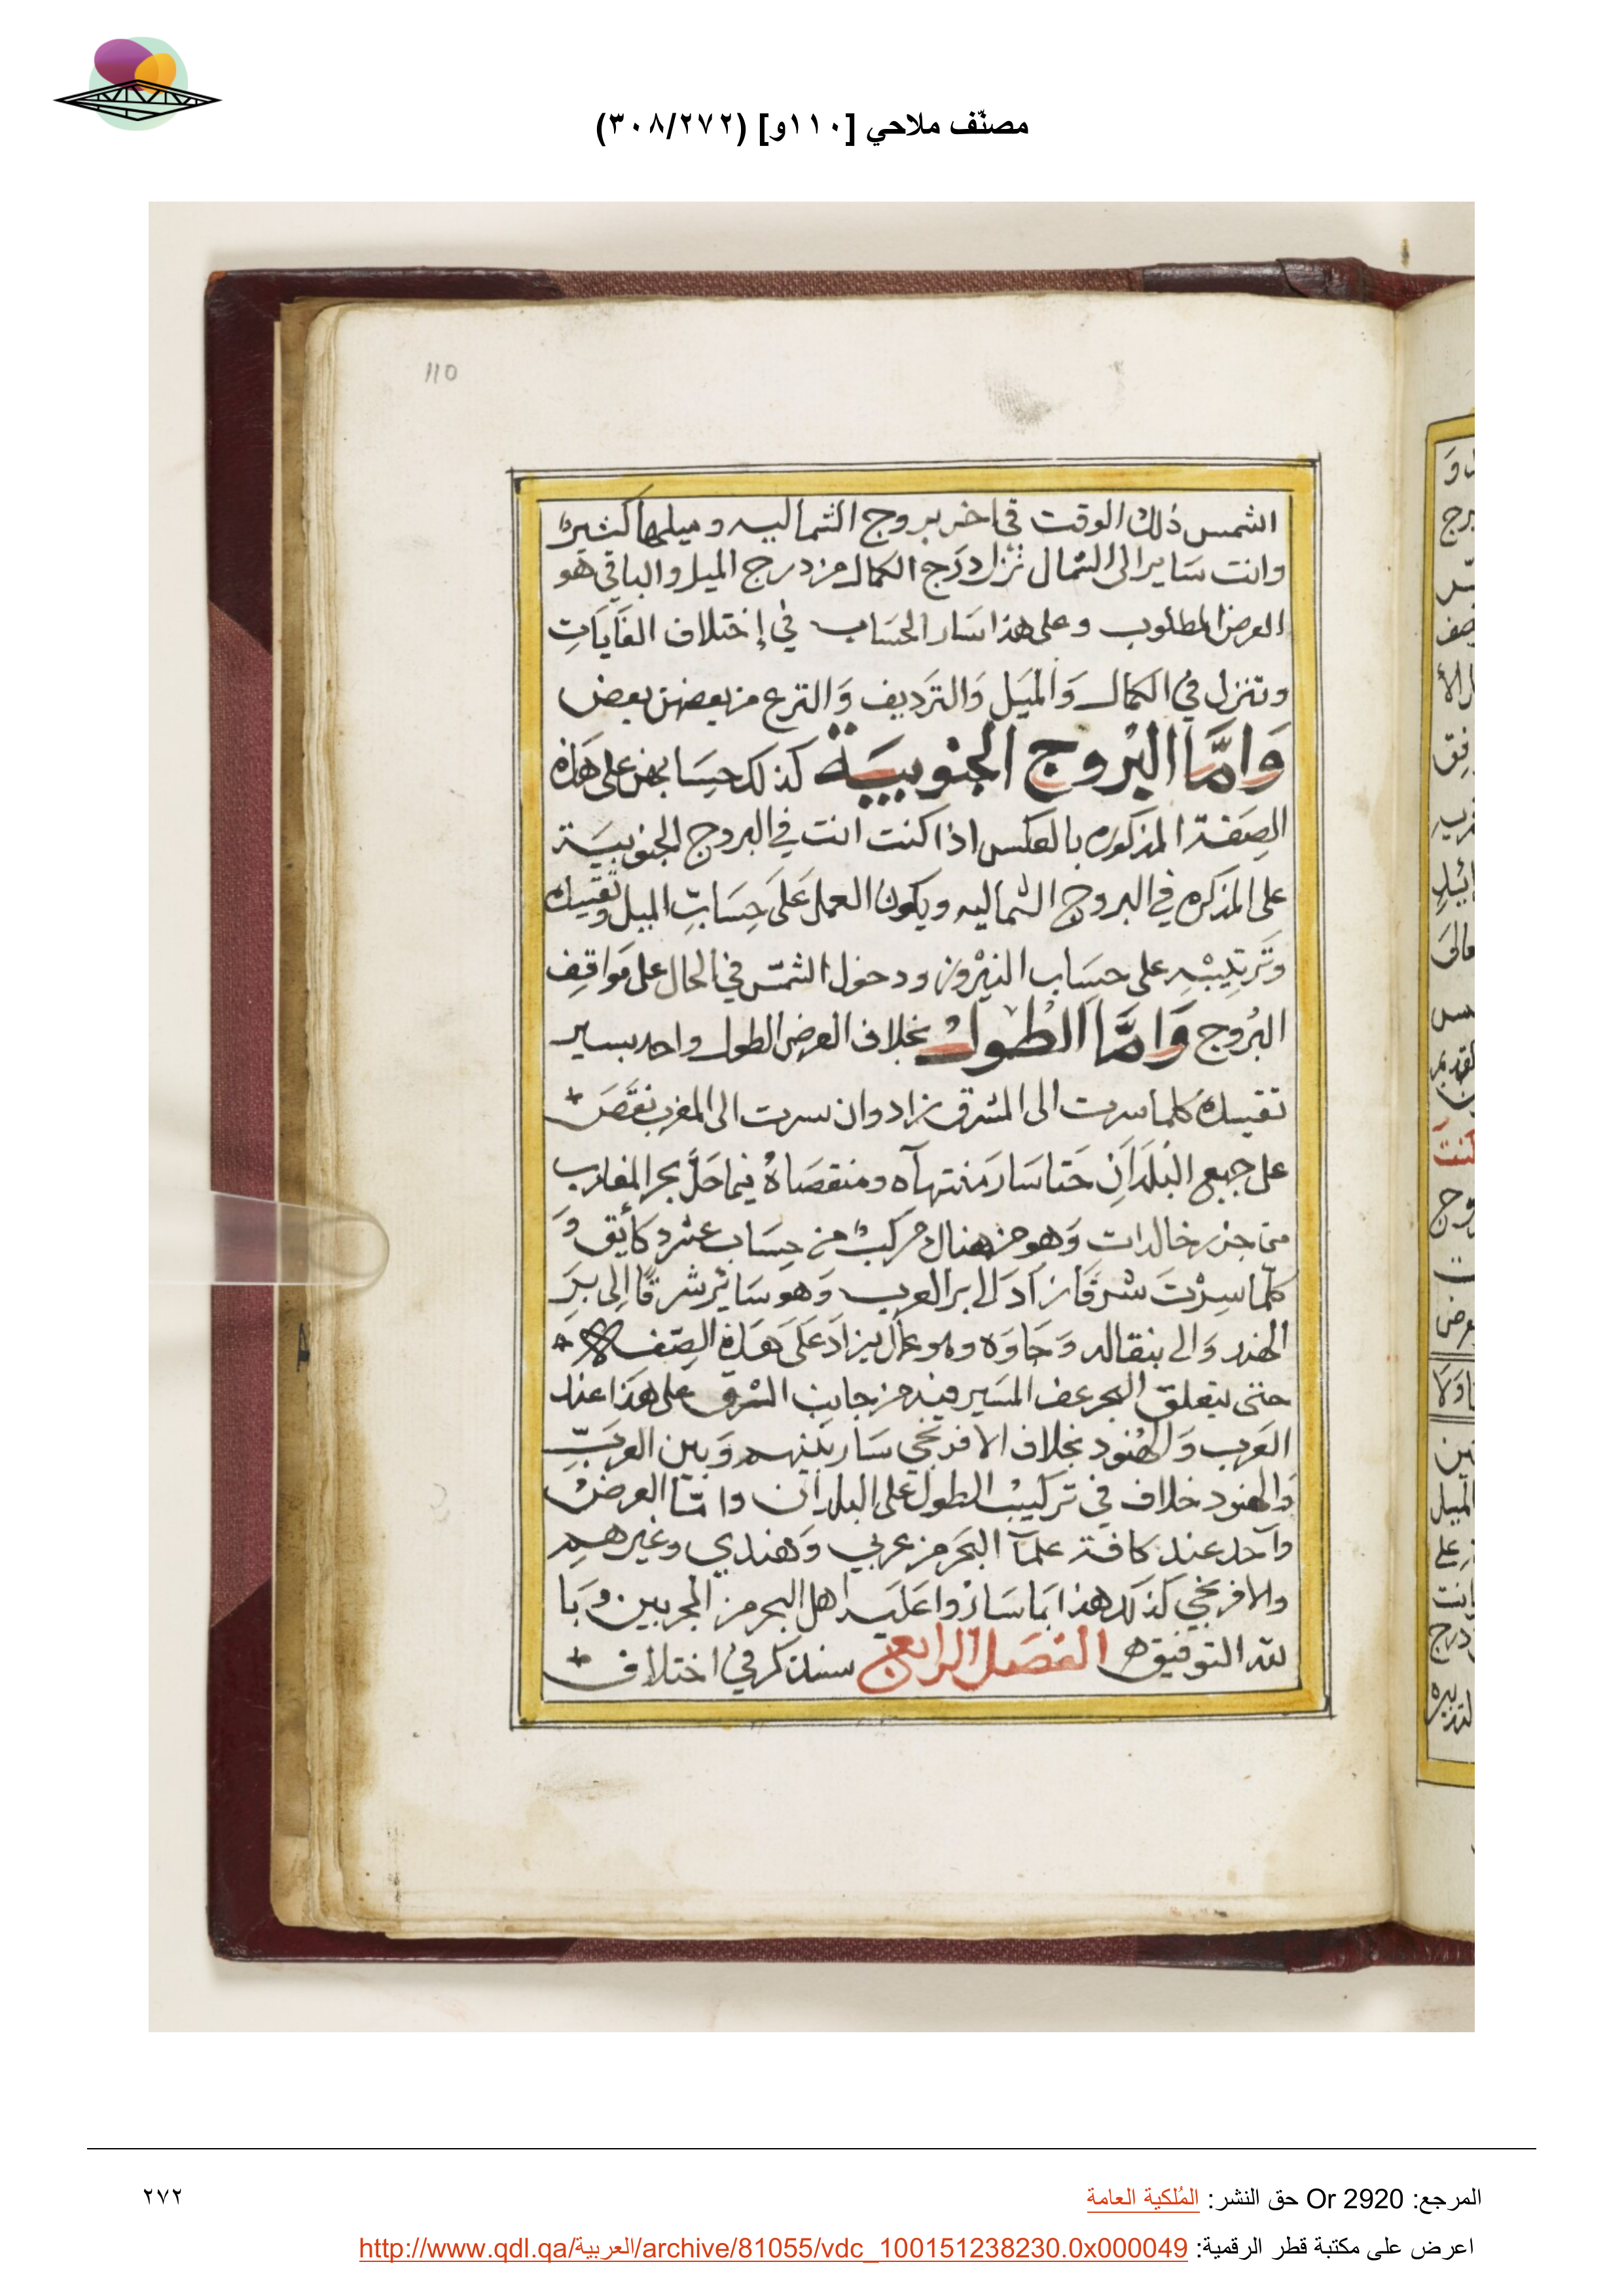 مصنّف ملاحي [١١٠و] (٣٠٨/٢٧٢)
110
الشمس ذلك الوقت في اخر بروج الشماليه وميلها كثيرًا
وانت سَايرا الى الشمال نزل دَرَج الكمال من درج الميل والباقي هو
العرض المطلوب وعلى هذا سَار الحسَاب في إختلاف الغَايَاتِ
وتنزل في الكمال وَالميَل وَالترَديف وَالترع من بعضهن بعض
وَامَّا البرُوج الجنوبيَة كذلك حِسَابهن على هَاذه
الصِفَة المذكوره بالعكس اذا كنت انت في البروج الجنوبيَة
على المذكره في البروج الشماليه ويكون العمل عَلَى حِسَابِ الميل وتقييده
وتَرتِيبْهِ على حسَاب النيْروز ودخول الشمّس في الحال على مَواقِف
البرُوج وَامَّا الطُول بخلاف العرض الطول واحد بسير
تقييدهُ كلما سرت الى المشرق زاد وان سرت الى المغرب نقَصَ
على جميع البَلدَانِ حَتا سَار منتهآه ومنقصَاهُ فيما حَلَّ بحر المغارب
من جزر خالدات وَهو من هنال مركبٌ من حِسَاب عشرد كأيق وَ
كلّما سِرْتَ شرقَا زآدَ الى بر العرب وَهو سَائر شرقًا إلى برِ
الهند وَالى بنقاله وَجاوَه وهو عمال يزادَ عَلَى هَذهِ الصّفه
حتى يتعلق البحر عن المسَير فيه من جانب الشرق على هَذا عند
العَرب وَالهنُود بخلاف الافرنجي سَار بَينهم وَبين العرَبِ
وَالهنود خلاف في تركيبْ الطول على البلدآن وامّا العرضْ
وآحد عند كافة علمآ البحَر من عربي وَهندي وغيرهم
والافرنجي كذلك هذا بمَا سَارُوا عَليه اهل البحر من المجربين وَبَا
لله التوفيق الفصَل الرابع سنذكر في اختلاف
المرجع: Or 2920 حق النشر: المُلكية العامة
٢٧٢
اعرض على مكتبة قطر الرقمية: http://www.qdl.qa/العربية/archive/81055/vdc_100151238230.0x000049